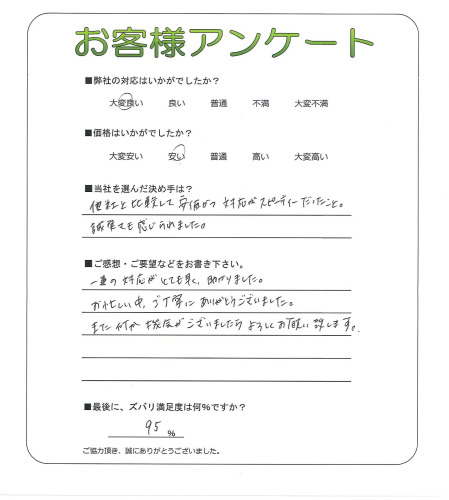 お客様アンケート
■弊社の対応はいかがでしたか？
大変良い 良い 普通 不満 大変不満
■価格はいかがでしたか？
大変安い 安い 普通 高い 大変高い
■当社を選んだ決め手は？
他社と比較して安価かつ対応がスピーディーだったこと。
誠実さも感じられました。
■ご感想・ご要望などをお書き下さい。
一連の対応がとても早く、助かりました。
お忙しい中、ご丁寧にありがとうございました。
また何か機会がございましたらよろしくお願い致します。
■最後に、ズバリ満足度は何%ですか？
95 %
ご協力頂き、誠にありがとうございました。